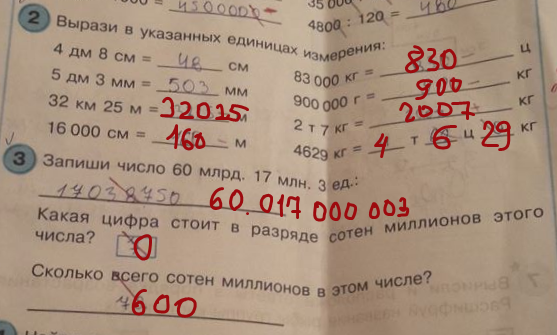 4500000
35 000
4800 : 120 =
2 Вырази в указанных единицах измерения:
4 дм 8 см = 48 см
83 000 кг = 830 ц
5 дм 3 мм = 503 мм
900 000 г = 900 кг
32 км 25 м = 32025 м
2 т 7 кг = 2007 кг
16 000 см = 160 м
4629 кг = 4 т 6 ц 29 кг
3 Запиши число 60 млрд. 17 млн. 3 ед.:
17038750 60.017 000 003
Какая цифра стоит в разряде сотен миллионов этого
числа? 0
Сколько всего сотен миллионов в этом числе?
600